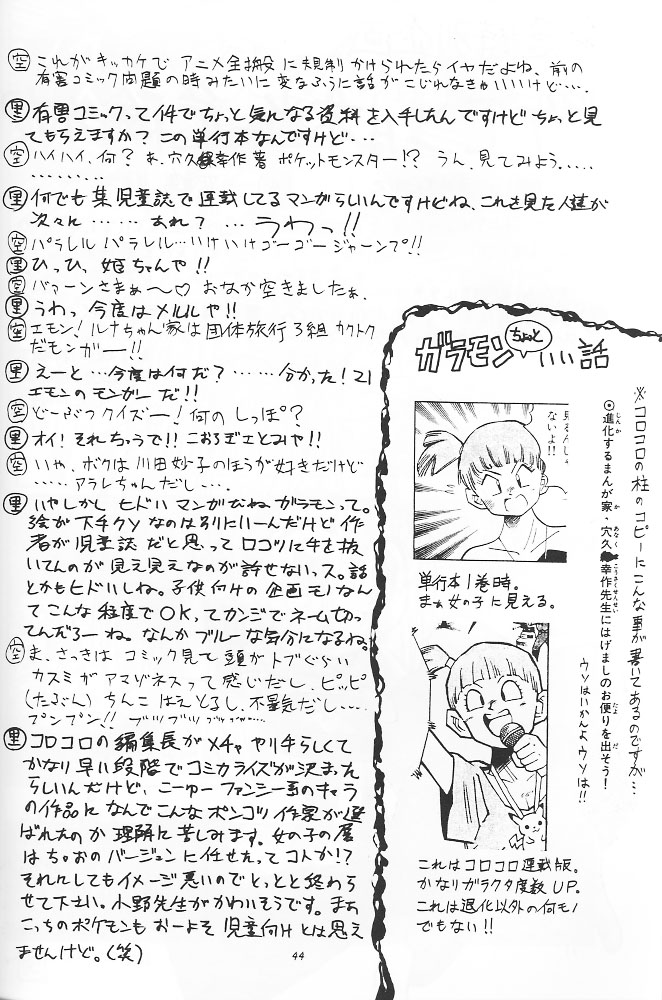 空 これがキッカケで アニメ全般に規制かけられたらイヤだよね、前の
有害コミック問題の時みたいに変なふうに話がこじれなきゃいいけど‥‥.
里 有害コミックって件でちょっと気になる資料を入手したんですけど ちょっと見
てもらえますか? この単行本なんですけど‥‥
空 ハイハイ、何? あ、穴久保幸作 著 ポケットモンスター!? うん、見てみよう‥‥‥
‥‥‥‥‥
里 何でも 某児童誌で連載してるマンガらしいんですけどね、これを見た人達が
次々に‥‥‥‥ あれ? ‥‥ うわっ!!
空 パラレル パラレル‥‥いけいけゴーゴージャーンプ!!
里 ひっひ、姫ちゃんや!!
空 バァーンさまぁ〜♡ おなか空きましたぁ.
里 うわっ 今度はメルルや!!
空 エモン! ルナちゃん家は団体旅行3組 カクトク
だモンガー!!
里 えーと‥‥今度は何だ?‥‥‥分かった! 21
エモンのモンガーだ!!
空 どーぶつクイズー! 何のしっぽ?
里 オイ! それちゃうで!! こおろぎさとみや!!
空 いや、ボクは川田妙子のほうが好きだけど
‥‥‥アラレちゃんだし‥‥.
里 いやしかし ヒドいマンガだねガラモンって。
絵が下手クソなのは別にいーんだけど作
者が児童誌だと思ってロコツに手を抜
いてんのが見え見えなのが許せないっス。話
とかもヒドいしね。子供向けの企画モノなん
てこんな程度でOK,てカンジでネーム切っ
てんだろーね。なんかブルーな気分になるね。
空 ま、さっきは コミック見て頭がトブぐらい
カスミがアマゾネスって感じだし、ピッピ
(たるぶん)ちんこ はえとるし、不景気だし‥‥
プンプン!! ブツブツ
里 コロコロの編集長がメチャ やり手らしくて
かなり早い段階でコミカライズが決まった
らしいんだけど、こーゆーファンシー系のキャラ
の作品になんでこんなポンコツ作家が選
ばれたのか理解に苦しみます。女の子の層
はちゃおのバージョンに任せたってコトか!?
それにしてもイメージ悪いのでとっとと終わら
せて下さい。小野先生がかわいそうです。まぁ
こっちのポケモンもおーよそ児童向けとは思え
ませんけど。(笑)
ガラモン ちょっと いい話
見るんじゃ
ないよ!!
単行本1巻時。
まぁ女の子に見える。
これはコロコロ連載版。
かなりガラクタ度数UP。
これは退化以外の何モノ
でもない!!
※コロコロの柱のコピーにこんな事が書いてあるのですが‥‥
◎進化するまんが家・穴久 幸作先生にはげましのお便りを出そう!
ウソはいかんよウソは!!
44